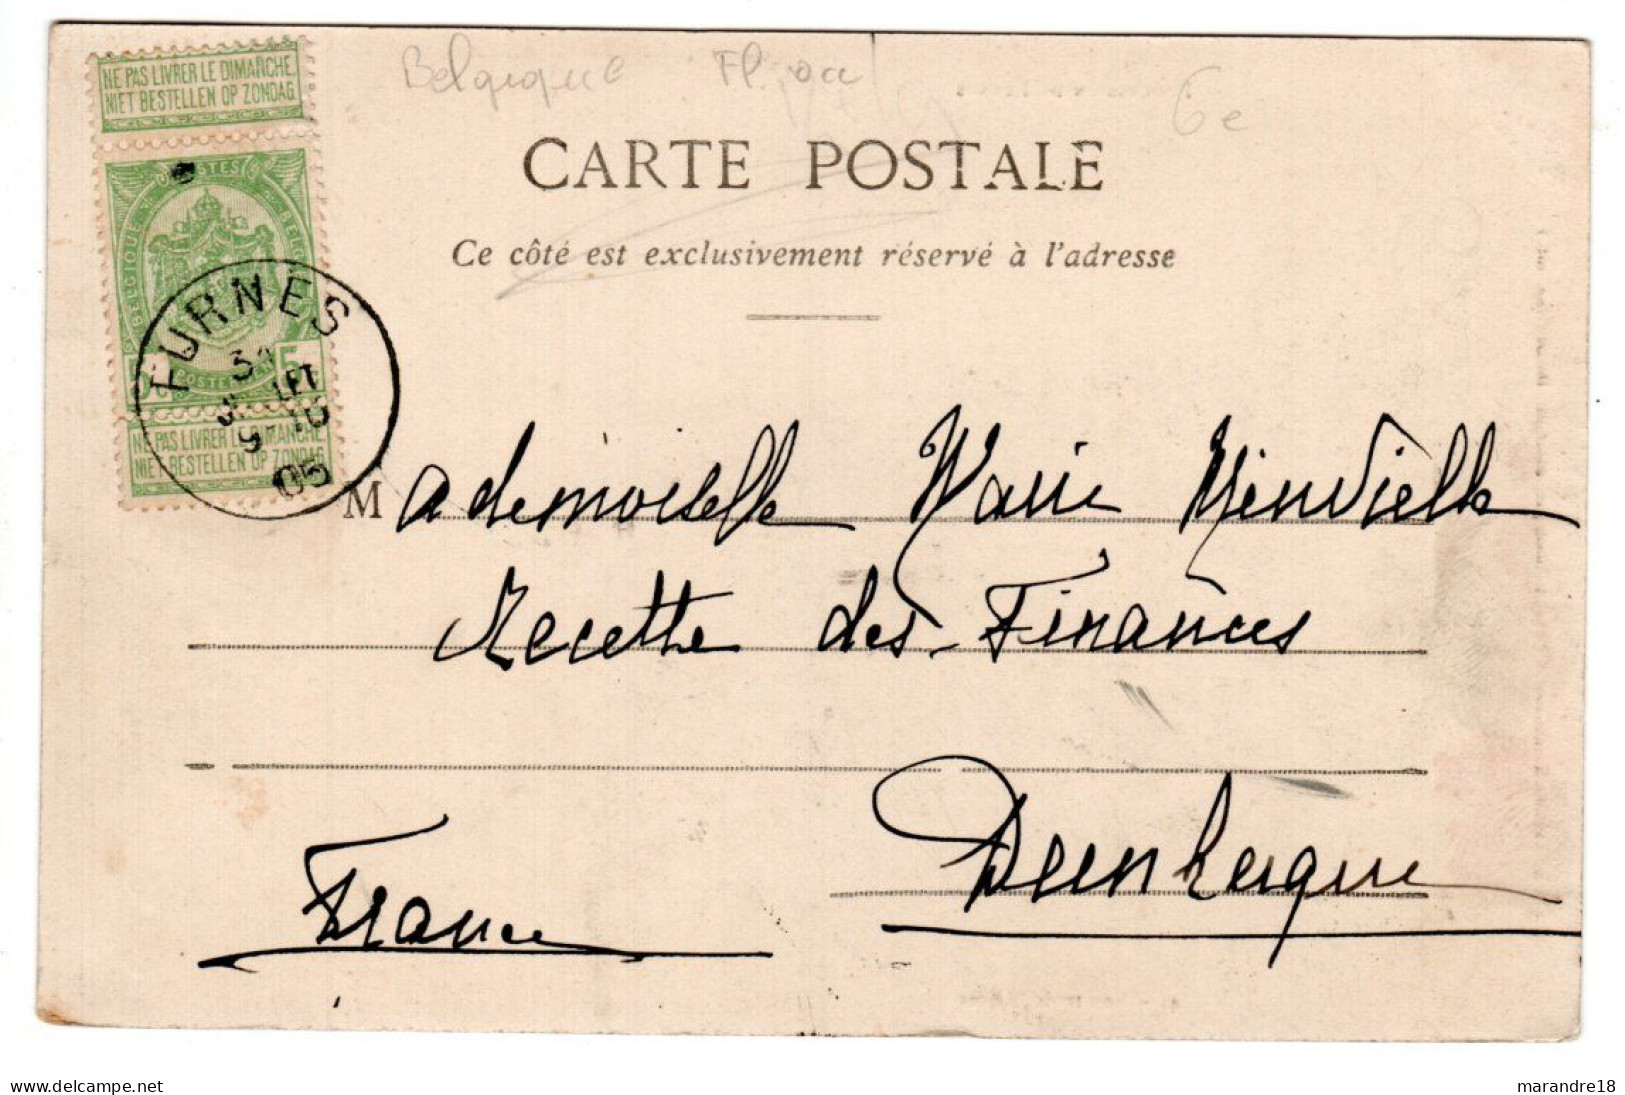 Belgique Fl. occ 6e
NE PAS LIVRER LE DIMANCHE.
NIET BESTELLEN OP ZONDAG
CARTE POSTALE
POSTES
BELGIQUE
Ce côté est exclusivement réservé à l'adresse
FURNES
JUILLET
9-10
05
5c 5
POSTERIJEN
NE PAS LIVRER LE DIMANCHE.
NIET BESTELLEN OP ZONDAG
Mademoiselle Marie Minvielle
Recette des Finances
Dunkerque
France
www.delcampe.net
marandre18